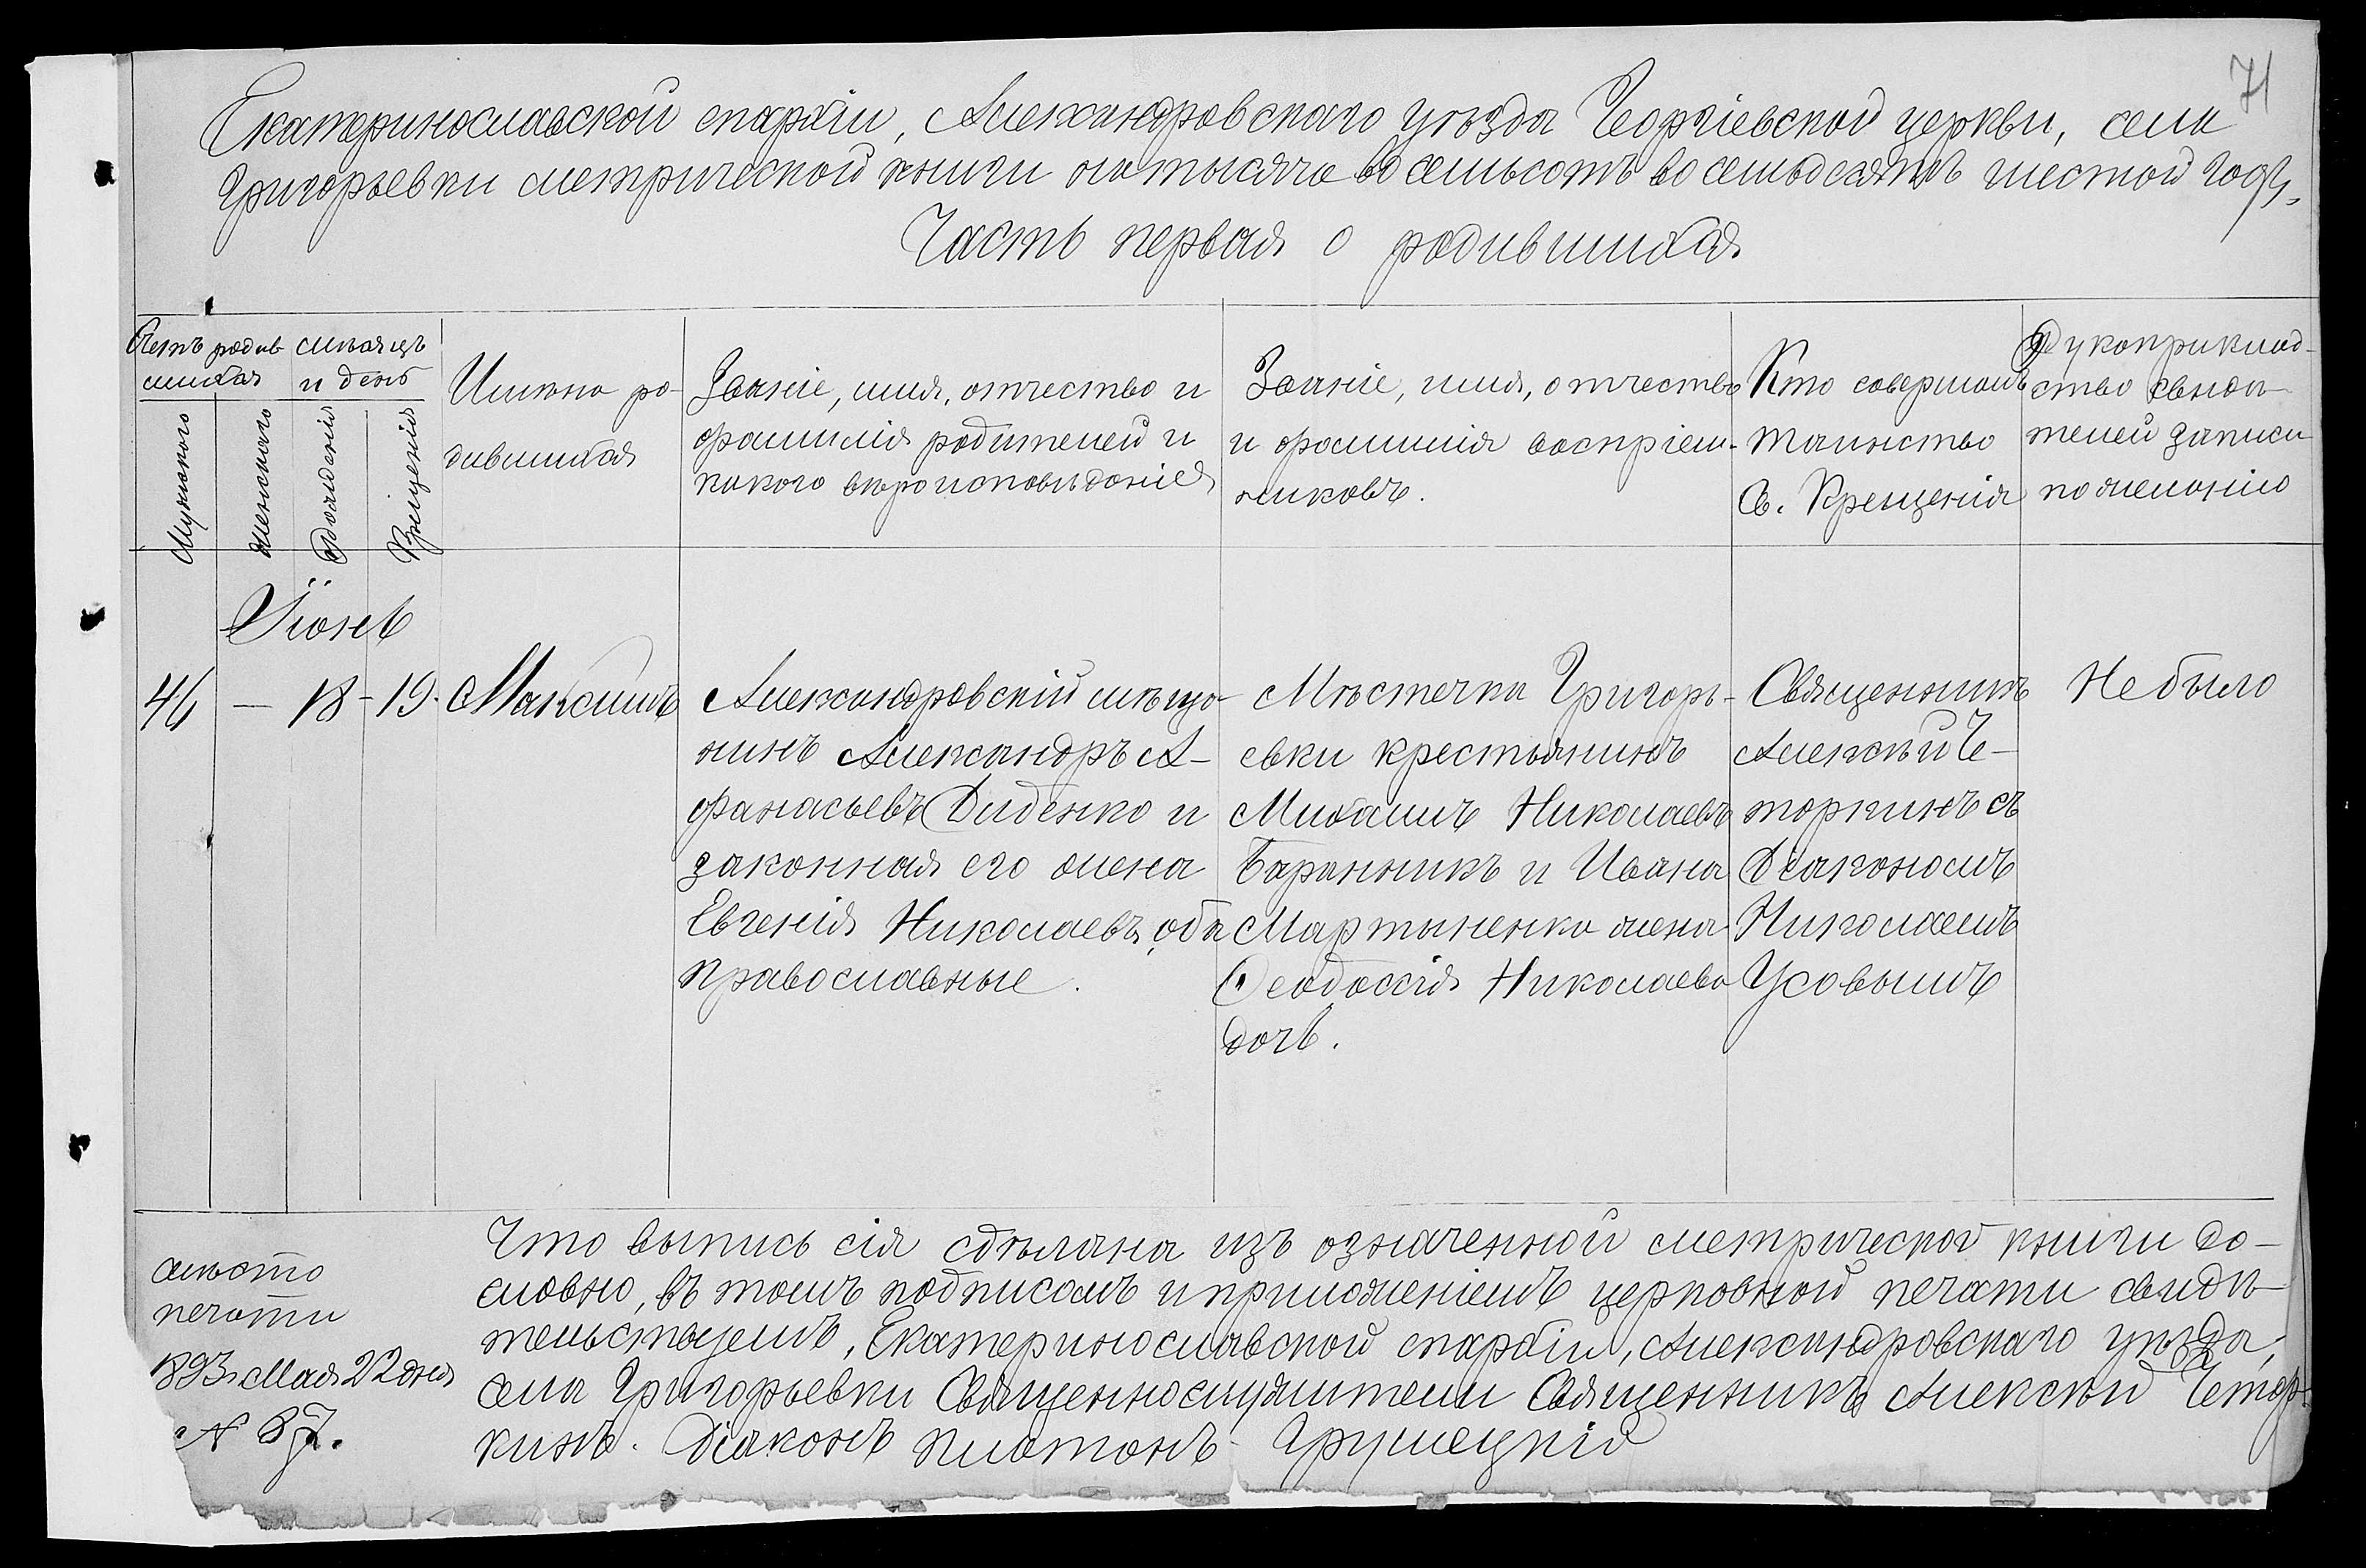 71
Екатеринославской епархіи, Александровскаго уѣзда Георгіевской церкви, села
Григорьевки метрической книги на тысяча восемьсотъ восемьдесятъ шестой годъ,
Часть первая о родившихся
Счетъ родив
шихся
Мѣсяцъ
и день
Мужского
Женскаго
Рожденія
Крещенія
Имена ро-
дившихся
Званіе, имя, отчество и
фамилія родителей и
какого вѣроисповѣданія
Званіе, имя, отчество
и фамилія воспріем-
никовъ.
Кто совершалъ
таинство
Св. Крещенія
Рукоприклад-
ство свидѣ-
телей записи
по желанію
Іюнь
46 — 18 - 19. Максимъ
Александровскій мѣща-
нинъ Александръ А-
фанасьевъ Диденко и
законная его жена
Евгенія Николаева, оба
православные.
Мѣстечка Григорь-
евки крестьянинъ
Михаилъ Николаевъ
Баранникъ и Ивана
Мартыненка жена
Ѳеодосія Николаева
дочь.
Священникъ
Алексѣй Че-
торкинъ съ
Діакономъ
Николаемъ
Усовымъ
Не было
Что выпись сія сдѣлана изъ означенной метрической книги до-
словно, въ томъ подписомъ и приложеніемъ церковной печати свидѣ-
тельствуемъ, Екатеринославской епархіи, Александровскаго уѣзда,
села Григорьевки Священнослужители Священникъ Алексѣй Четор-
кинъ. Діаконъ Платонъ Грушецкій
Мѣсто
печати
1893 Мая 22 дня
№ 87.